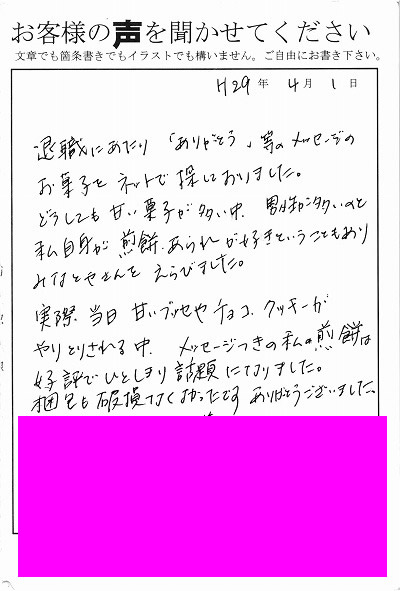 お客様の声を聞かせてください
文章でも箇条書きでもイラストでも構いません。ご自由にお書き下さい。
H29年 4月 1日
退職にあたり「ありがとう」等のメッセージの
お菓子をネットで探しておりました。
どうしても甘い菓子が多い中、男性が多いのと
私自身が煎餅、あられが好きということもあり
みなとやさんをえらびました。
実際、当日 甘いブッセやチョコ、クッキーが
やりとりされる中、メッセージつきの私の煎餅は
好評でひとしきり話題になりました。
梱包も破損なくよかったです ありがとうございました。